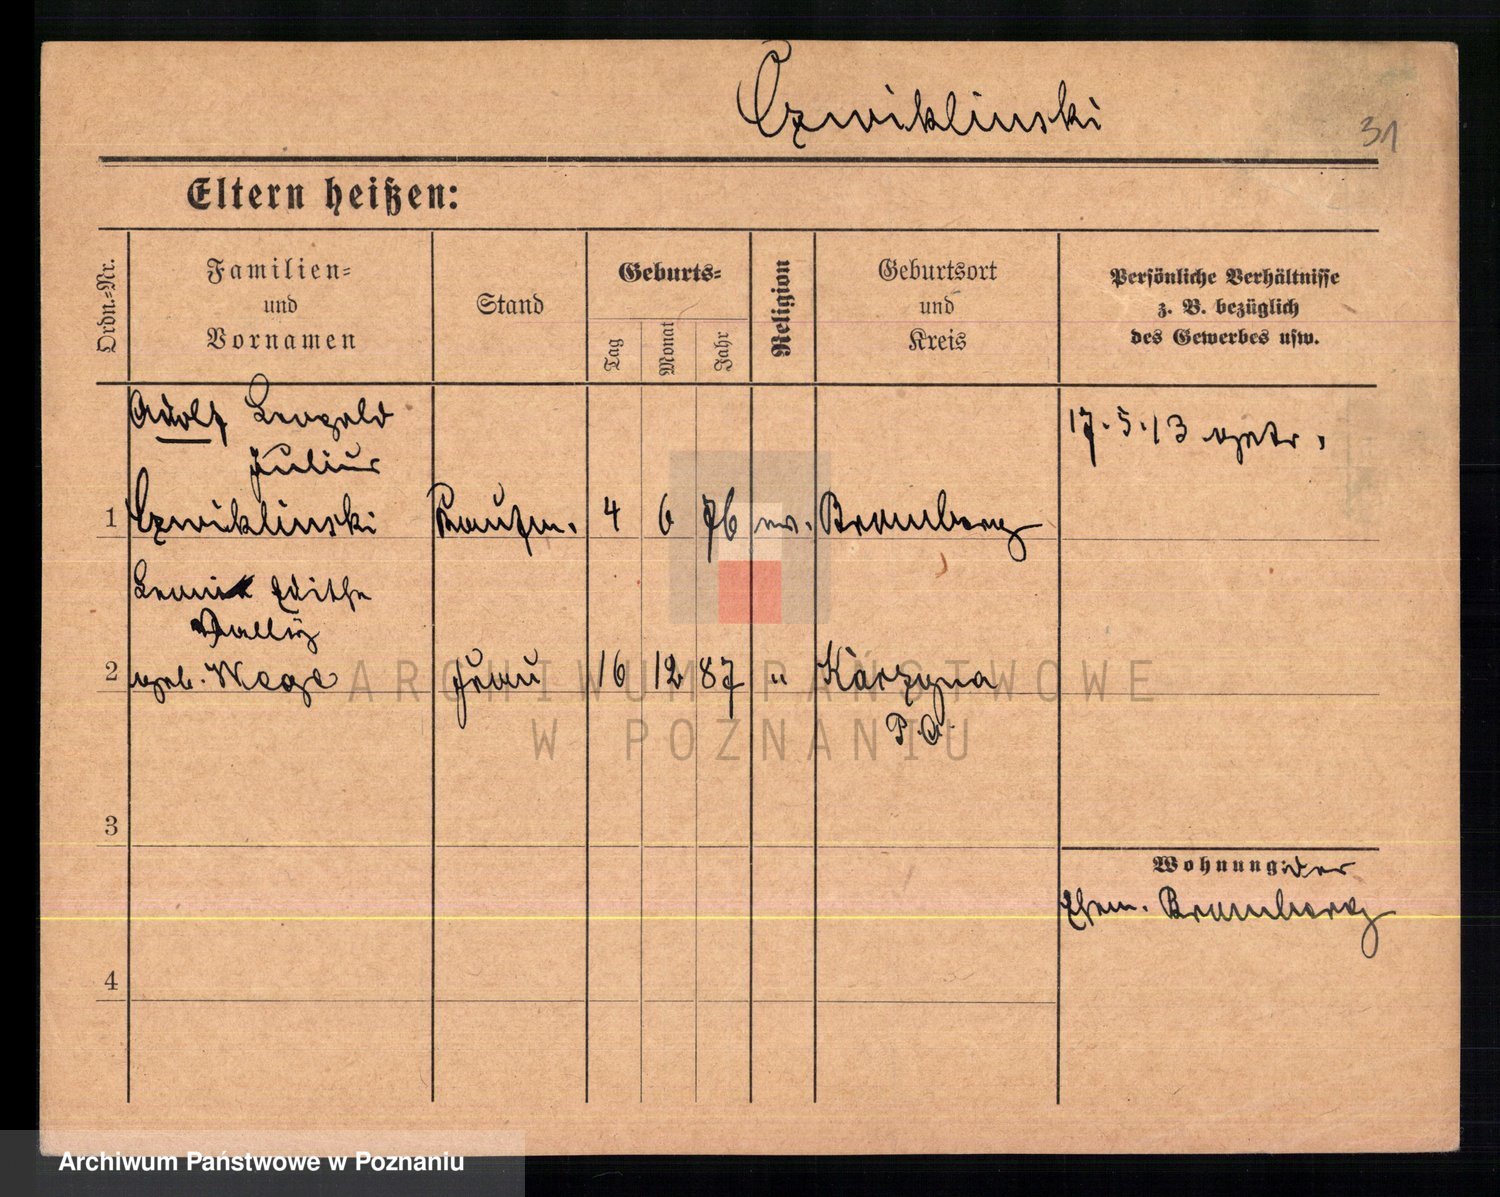 Czwiklinski
31
Eltern heißen:
Ordn.=Nr.
Familien=
und
Vornamen
Stand
Geburts=
Tag
Monat
Jahr
Religion
Geburtsort
und
Kreis
Persönliche Verhältnisse
z. B. bezüglich
des Gewerbes usw.
Adolf Leopold
Julius
1 Czwiklinski Kaufm. 4 6 76 ev. Bromberg
17.5.13 getr.
Edithe
Vally
2 geb. Waage Frau 16 12 87 " Karzyna
P.O.
3
Wohnung: der
Ehem. Bromberg
4
ARCHIWUM PAŃSTWOWE
W POZNANIU
Archiwum Państwowe w Poznaniu